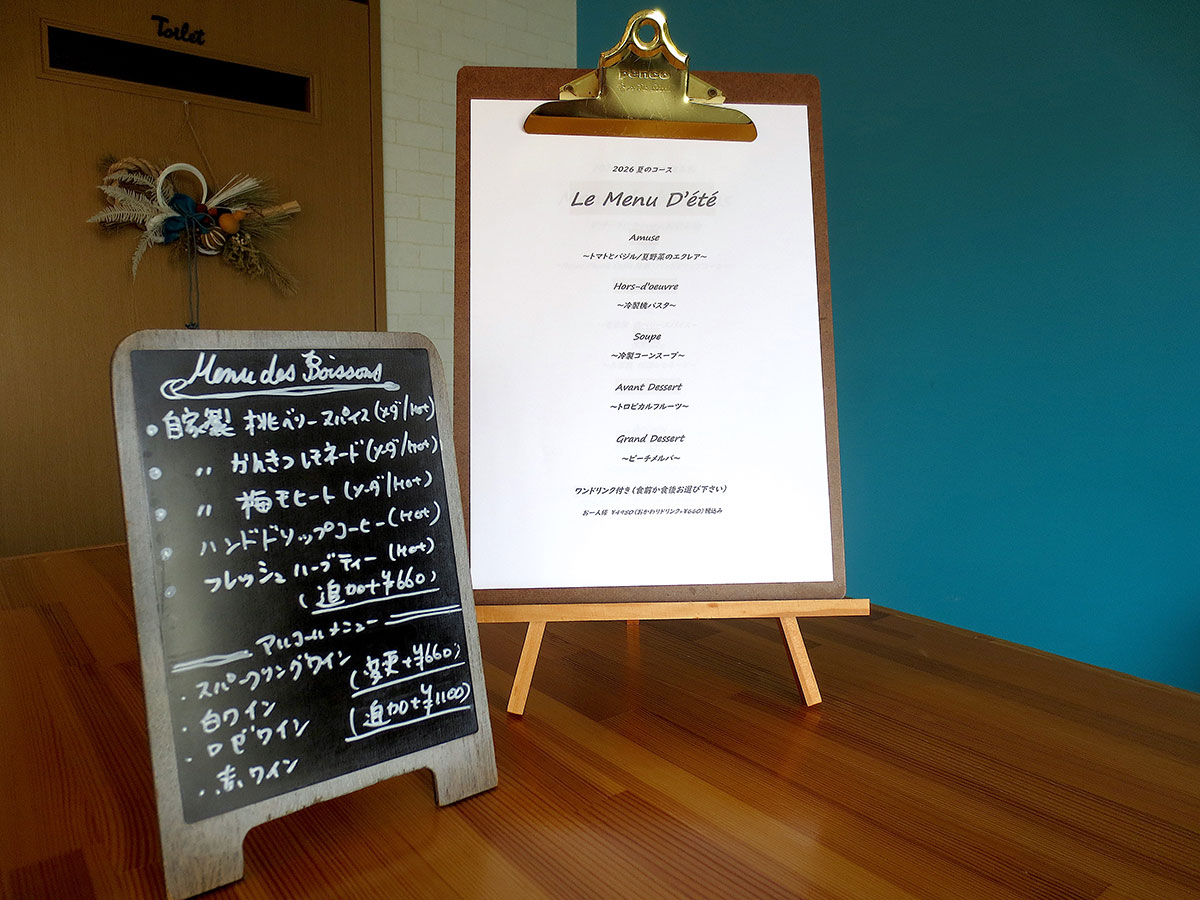 Toilet
penco
2026 夏のコース
Le Menu D'été
Amuse
～トマトとバジル/夏野菜のエクレア～
Hors-d'oeuvre
～冷製桃パスタ～
Soupe
～冷製コーンスープ～
Avant Dessert
～トロピカルフルーツ～
Grand Dessert
～ピーチメルバ～
ワンドリンク付き(食前か食後お選び下さい)
お一人様 ¥4950(おかわりドリンク+¥660)税込み
Menu des Boissons
・自家製 桃ベリースパイス(ソーダ/Hot)
・〃 かんきつレモネード(ソーダ/Hot)
・〃 梅モヒート(ソーダ/Hot)
・ハンドドリップコーヒー(Hot)
・フレッシュハーブティー(Hot)
(追加+¥660)
アルコールメニュー
・スパークリングワイン (変更+¥660)
・白ワイン (追加+¥1100)
・ロゼワイン
・赤ワイン